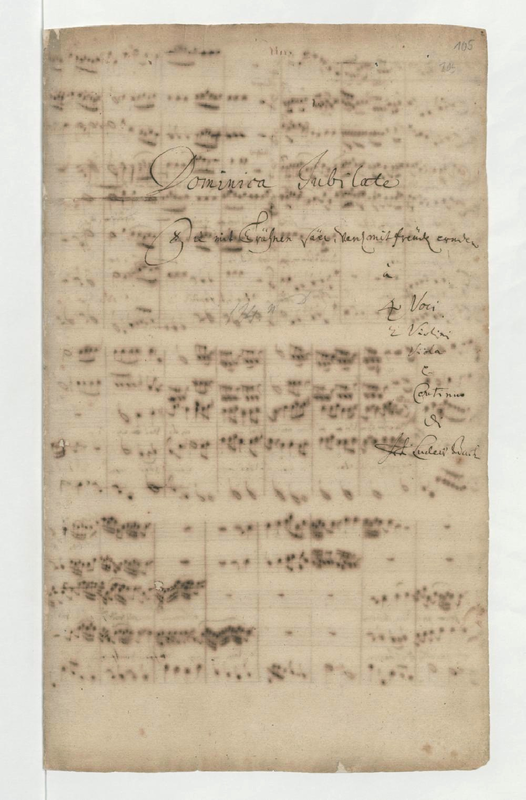 105
Dominica Jubilate
Die mit Trähnen säen, werden mit freüden ernden
à
4 Voci
2 Violini
Viola
e
Continuo
di
Joh Ludwig Bach